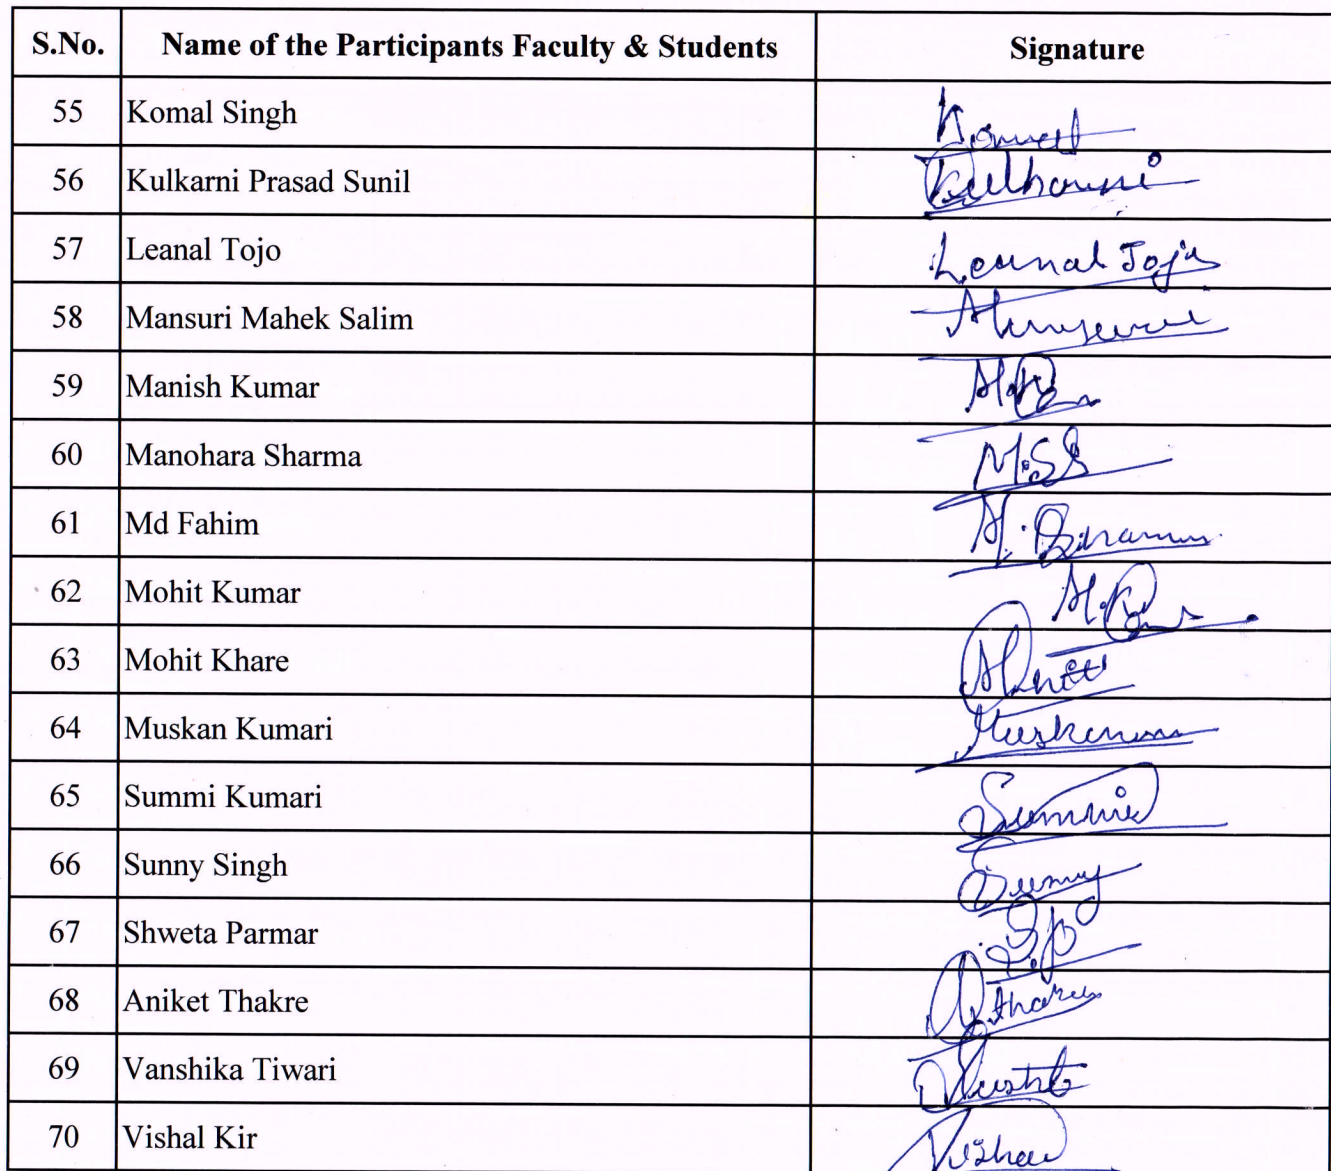 S.No. Name of the Participants Faculty & Students Signature
55 Komal Singh Komal
56 Kulkarni Prasad Sunil Kulkarni
57 Leanal Tojo Leanal Tojo
58 Mansuri Mahek Salim
59 Manish Kumar
60 Manohara Sharma
61 Md Fahim
62 Mohit Kumar
63 Mohit Khare
64 Muskan Kumari Muskan
65 Summi Kumari Summi
66 Sunny Singh Sunny
67 Shweta Parmar
68 Aniket Thakre
69 Vanshika Tiwari
70 Vishal Kir Vishal